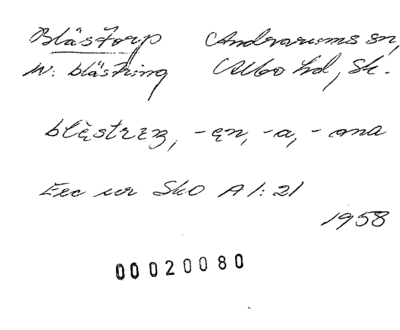 Blåstorp Andrarums sn,
Nr: blåstring Albo hd, Sk.
blęstrɪŋ, -ęn, -a, -ana
Exc ur SkO A 1:21
1958
00020080